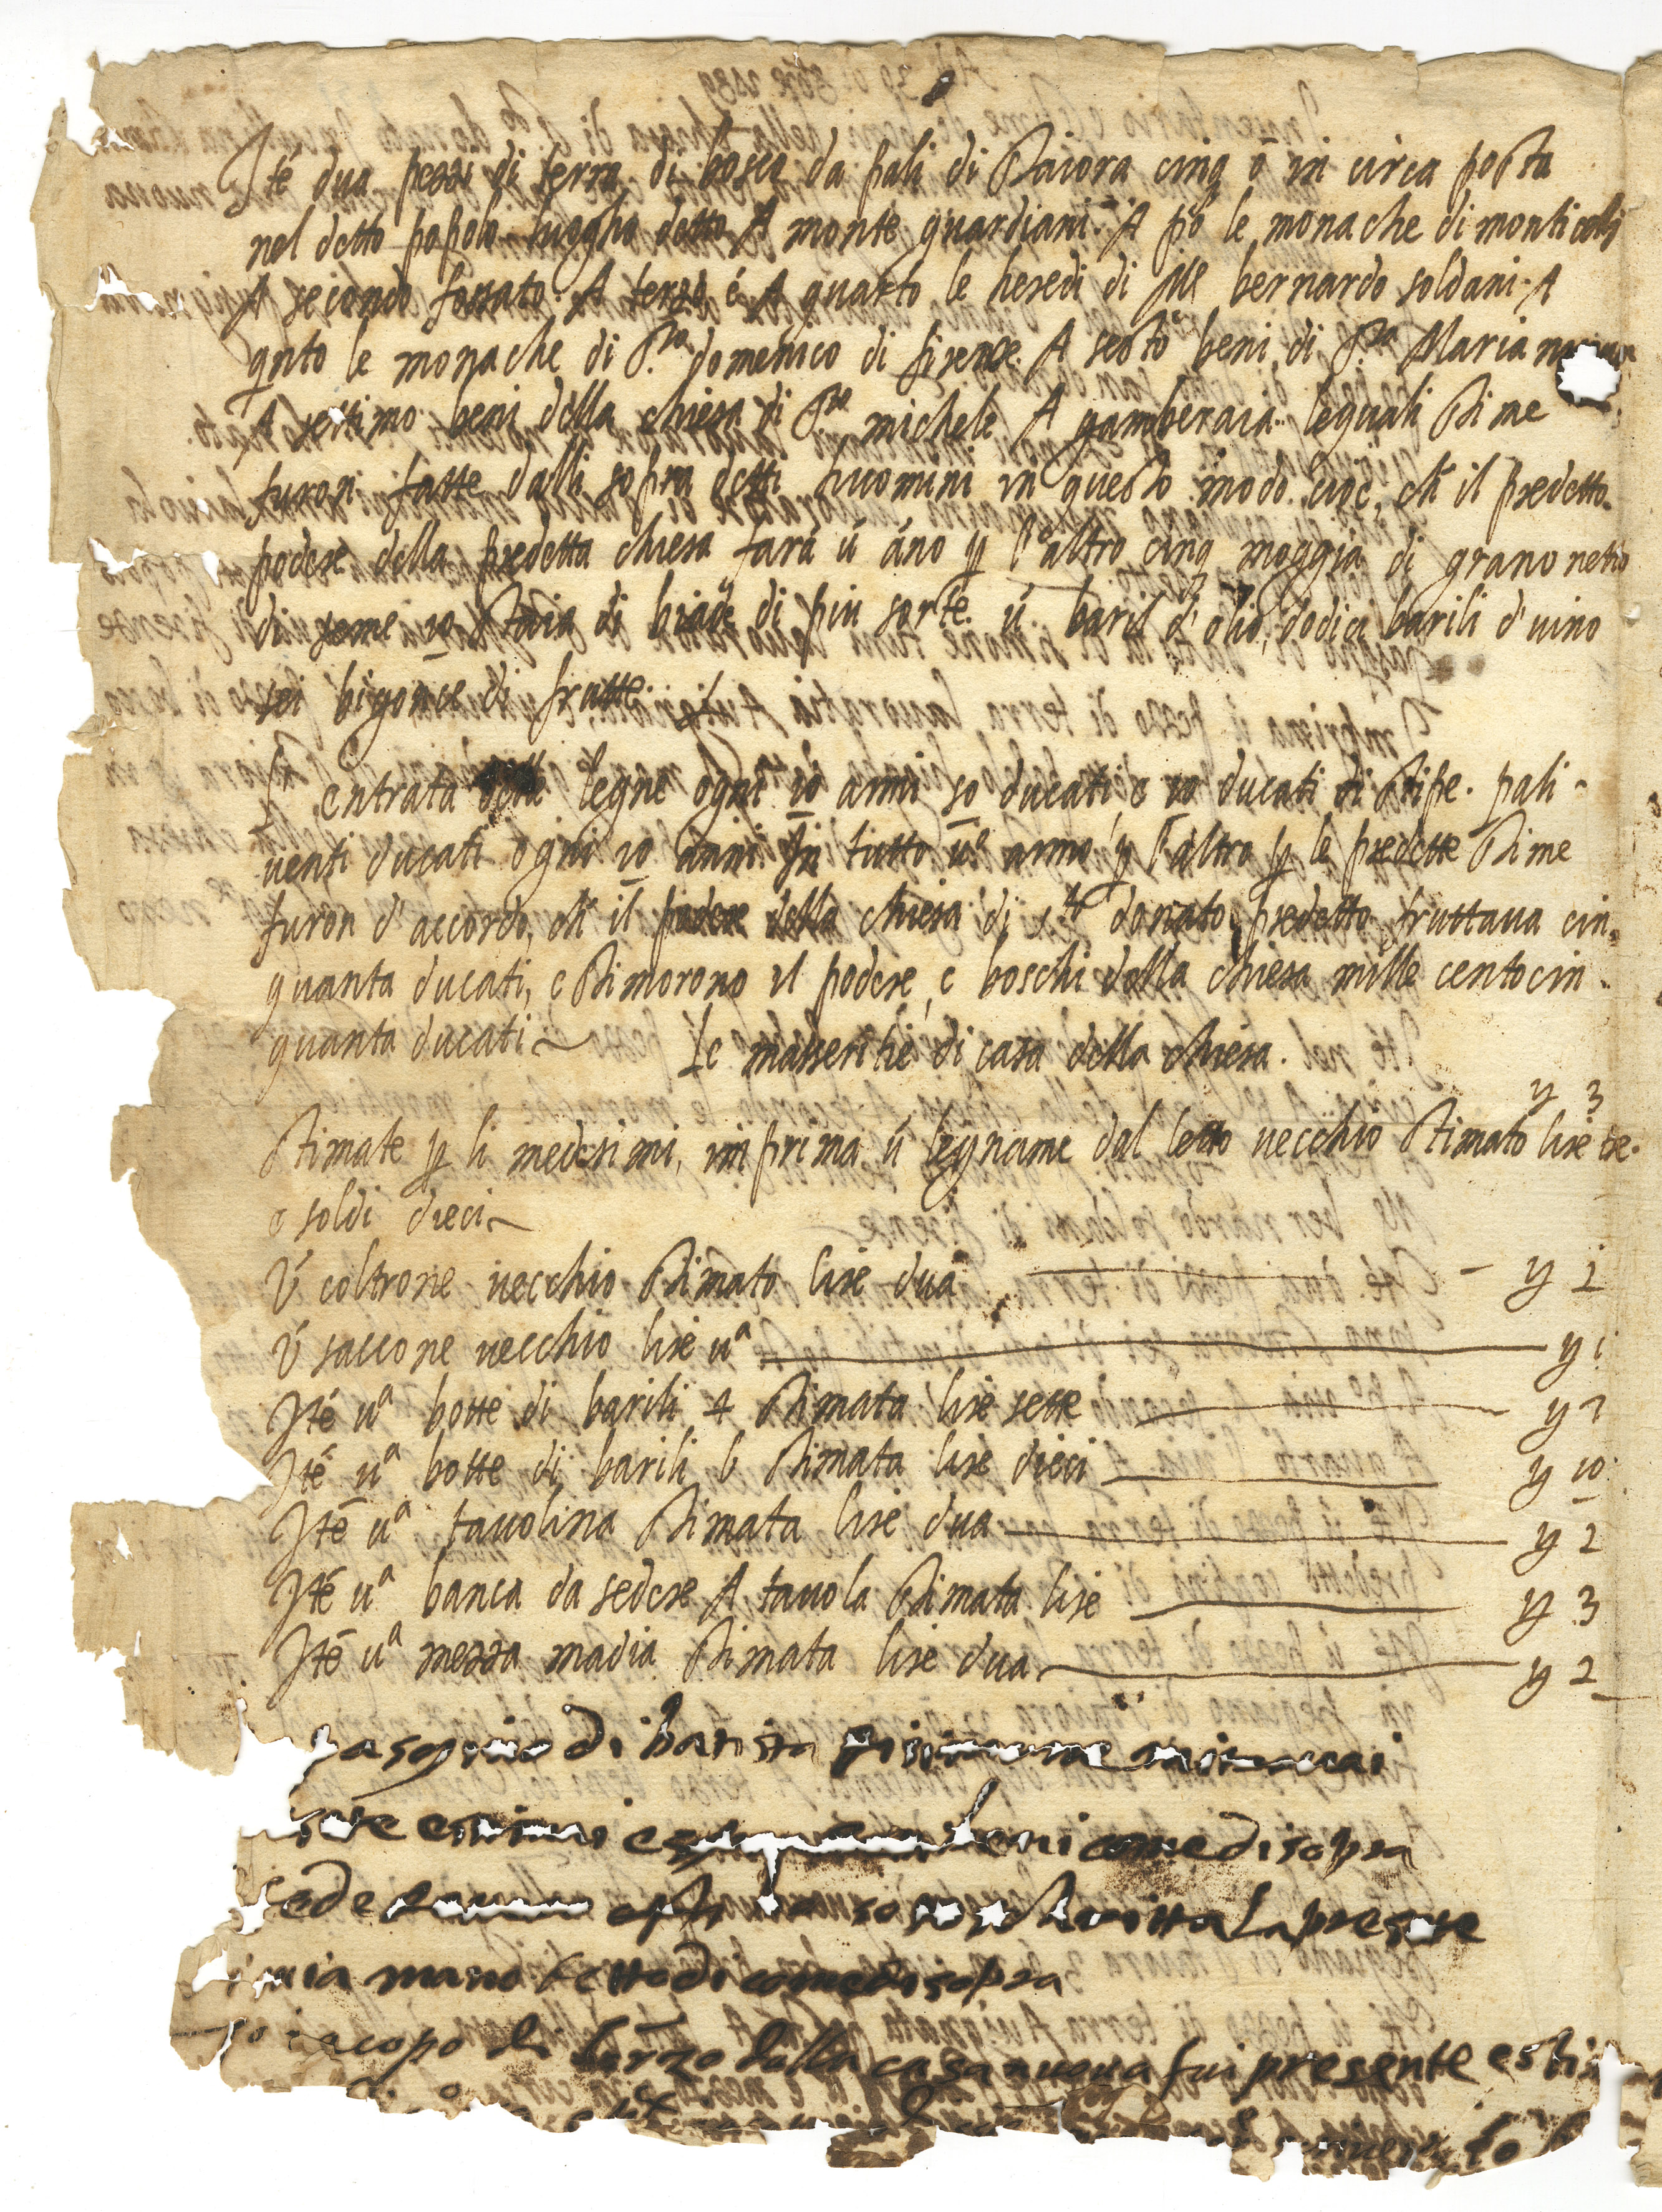 Ité dua pezzi di terra di bosco da pali di staiora cinq ó in circa posta
nel detto popolo luogho detto A monte guardiani. A pº le monache di monticelli
A secondo fossato. A terzo é A quarto le heredi di Mº bernardo soldani. A
qnto le monache di S.to domenico di firenze. A sesto beni di S.ta Maria
A settimo beni della chiesa di S.to michele A gamberaia. lequali stime
furon fatte dalli sopra detti huomini in questo modo. cioè, ch il predetto
podere della predetta chiesa farà ú áno p l'altro cinq moggia di grano netto
di seme 10 staia di biade di piu sorte. ú baril d'olio, dodici barili d'uino
sei bigonce di frutte.
entrata delle legne ogni 10 anni 50 ducati, e 10 ducati di stipe. pali
uenti ducati ogni 10 anni. In tutto uº anno p l'altro p le predette stime
furon d'accordo, ch il podere della chiesa di s.to donato predetto fruttaua cin
quanta ducati, e stimorono il podere, e boschi della chiesa mille centocin
quanta ducati
Le masseritie di casa della chiesa.
y 3
Stimate p li medesimi, imprima ú legname dal letto uecchio stimato lire tre.
e soldi dieci
Ú coltrone uecchio stimato lire dua y 2
Ú saccone uecchio lire uª y 1
Ité uª botte di barili 4 stimata lire sette y 7
Ité uª botte di barili 6 stimata lire dieci y 10
Ité uª tauolina stimata lire dua y 2
Ité uª banca da sedere A tauola stimata lire y 3
Ité uª mezza madia stimata lire dua y 2
di batista
beni come di sopra
ede soschritta la preste
mia mano detto di come di sopra
iacopo di lorzo dalla casa nuoua fui presente